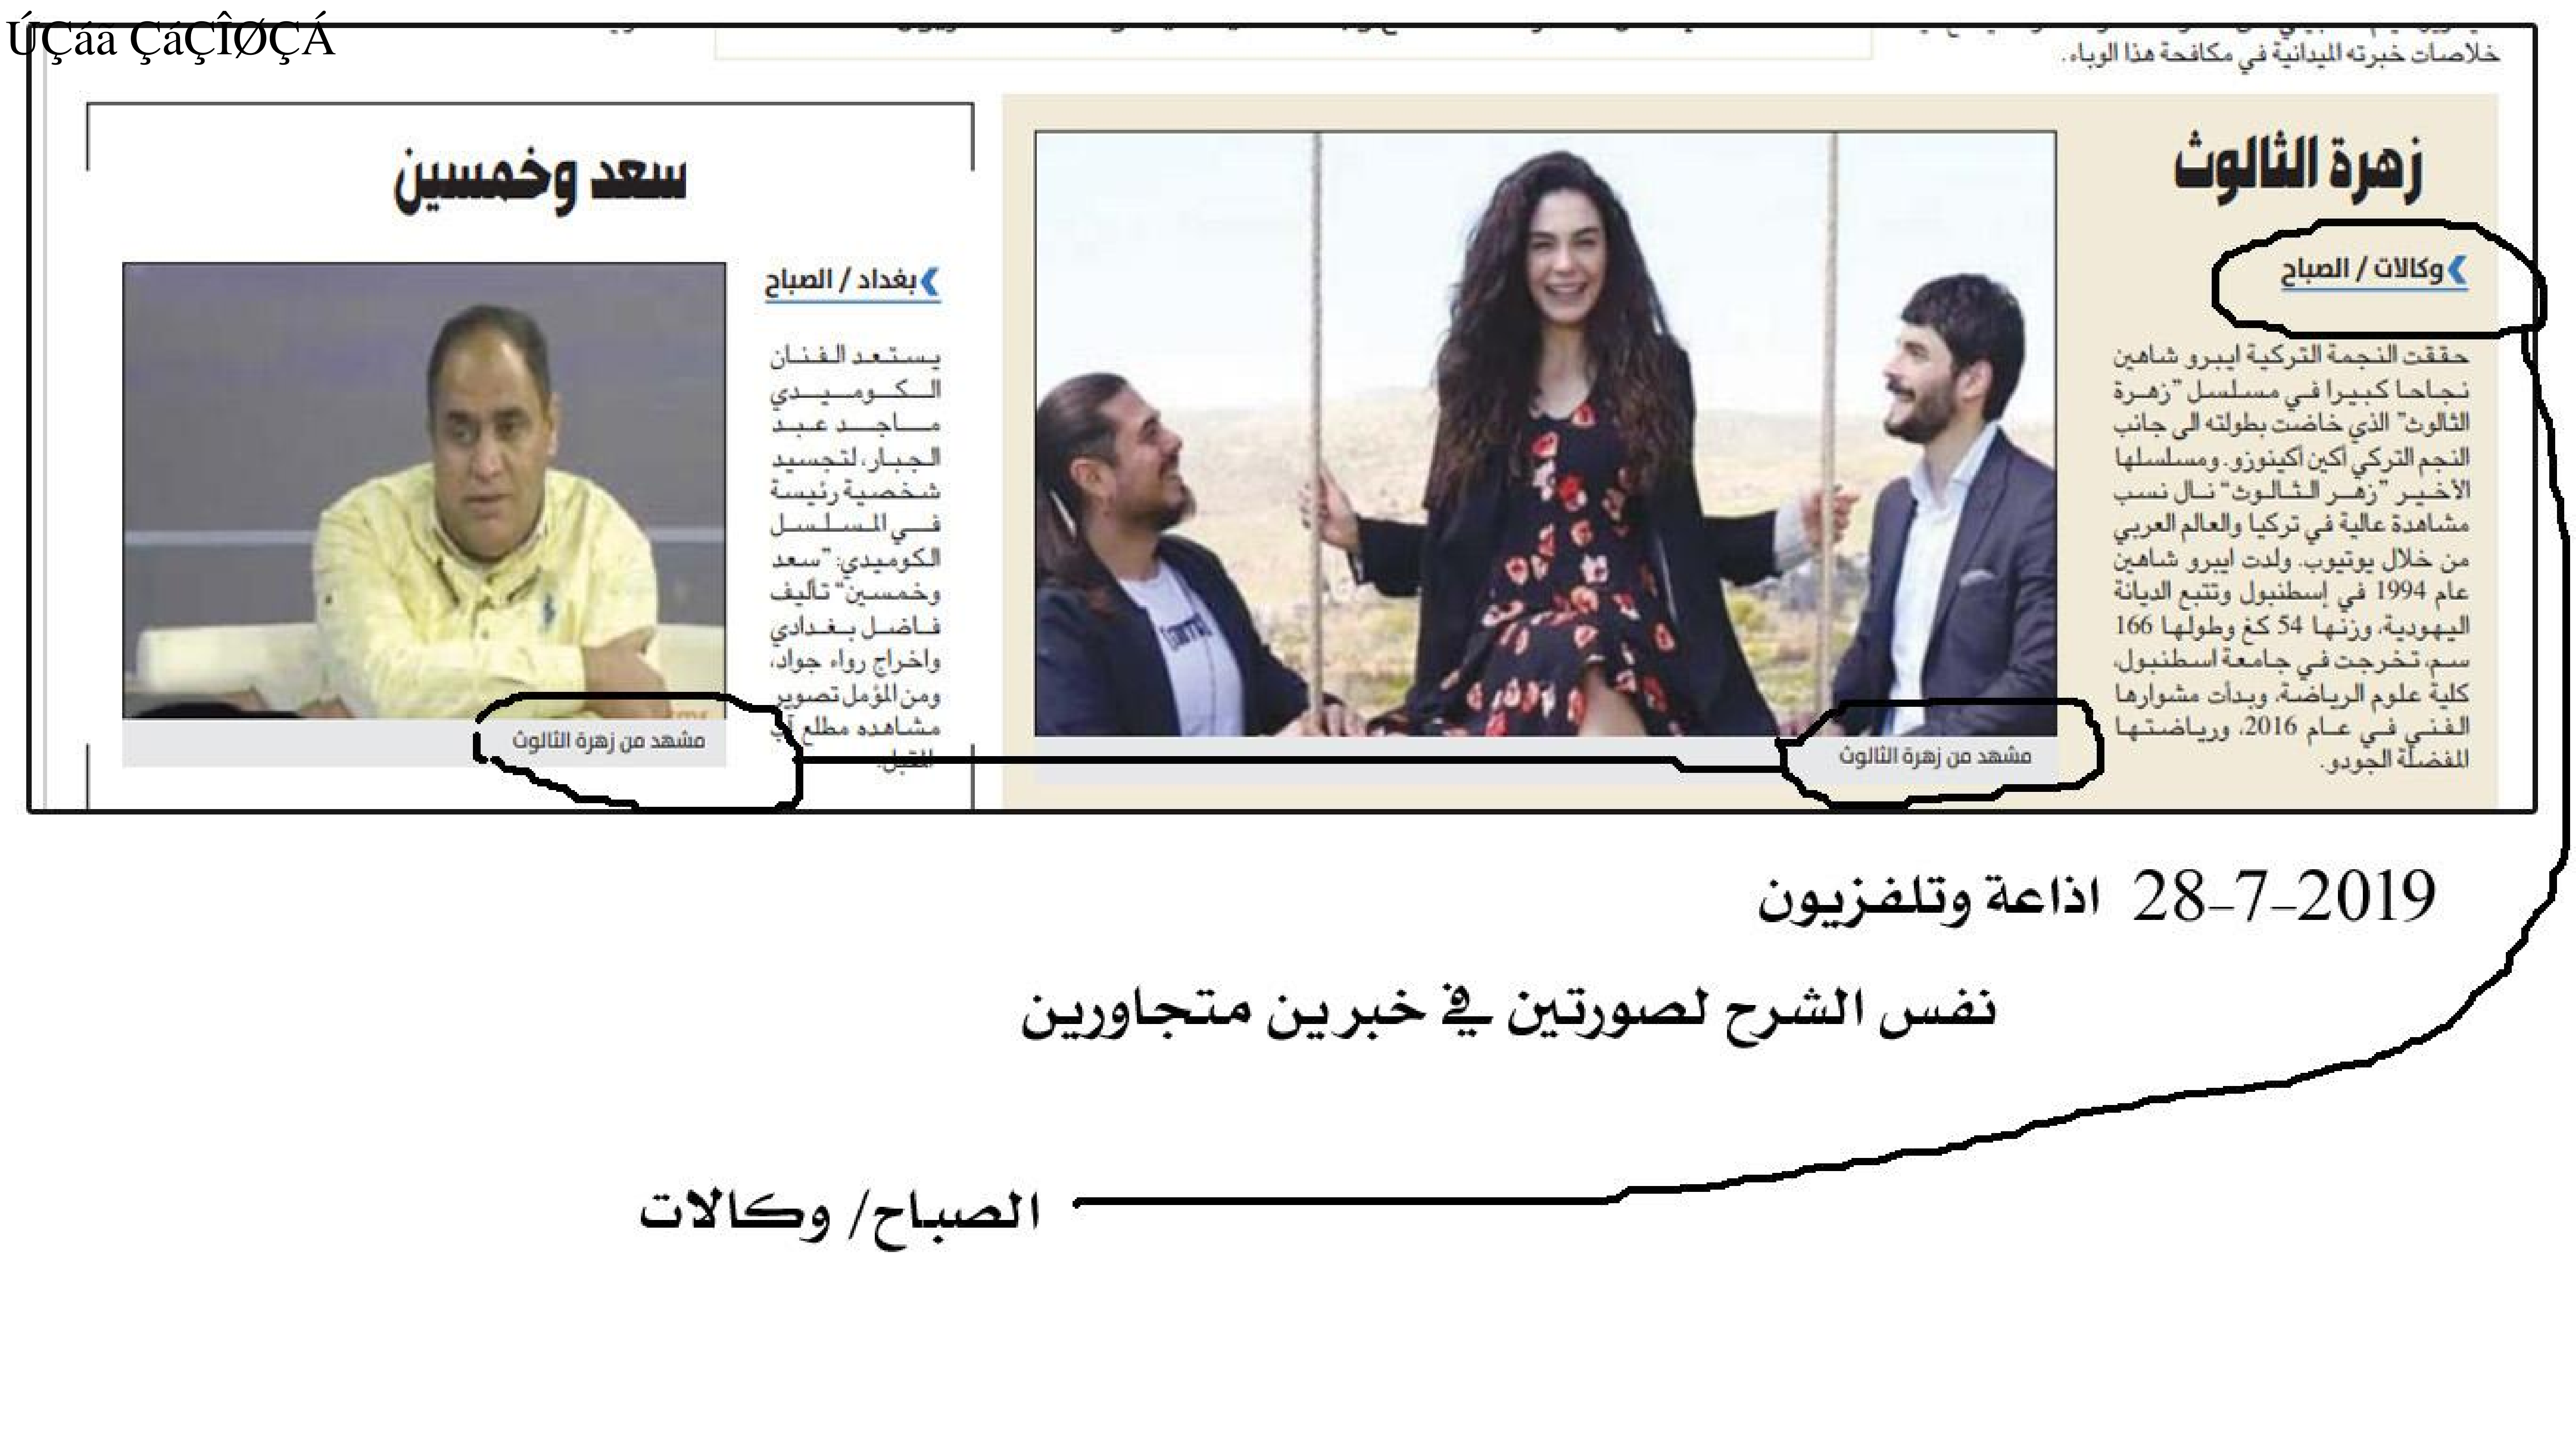 ÚÇáã ÇáÇÎØÇÁ
خلاصات خبرته الميدانية في مكافحة هذا الوباء.
زهرة الثالوث
وكالات / الصباح
حققت النجمة التركية ايبرو شاهين
نجاحا كبيرا في مسلسل "زهرة
الثالوث" الذي خاضت بطولته الى جانب
النجم التركي أكين أكينوزو. ومسلسلها
الأخير "زهر الثالوث" نال نسب
مشاهدة عالية في تركيا والعالم العربي
من خلال يوتيوب. ولدت ايبرو شاهين
عام 1994 في إسطنبول وتتبع الديانة
اليهودية، وزنها 54 كغ وطولها 166
سم، تخرجت في جامعة اسطنبول،
كلية علوم الرياضة، وبدأت مشوارها
الفني في عام 2016، ورياضتها
المفضلة الجودو.
مشهد من زهرة الثالوث
سعد وخمسين
بغداد / الصباح
يستعد الفنان
الكوميدي
ماجد عبد
الجبار، لتجسيد
شخصية رئيسة
في المسلسل
الكوميدي: "سعد
وخمسين" تأليف
فاضل بغدادي
واخراج رواء جواد،
ومن المؤمل تصوير
مشاهده مطلع آب
المقبل.
مشهد من زهرة الثالوث
28-7-2019 اذاعة وتلفزيون
نفس الشرح لصورتين في خبرين متجاورين
الصباح/ وكالات